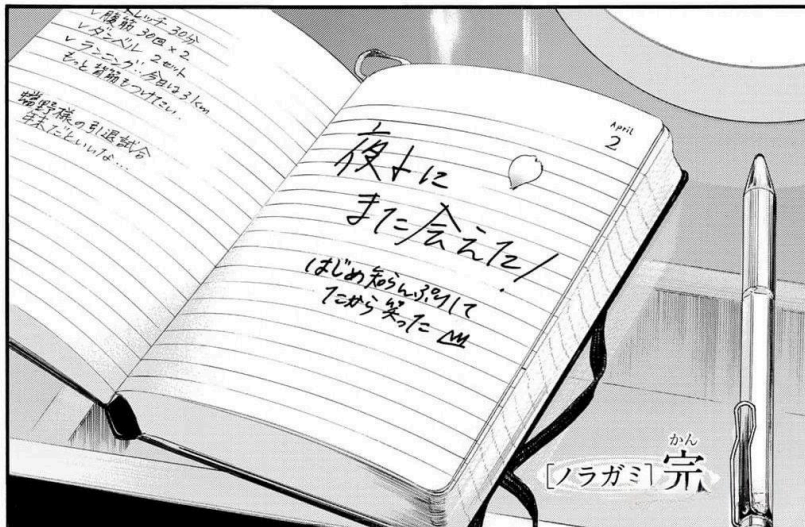 ストレッチ 30分
✓腹筋 30回×2
✓ダンベル 2セット
✓ランニング 今日は3km
もっと背筋をつけたい
噹野様の引退試合
年末だといいな…
April
2
夜トに
また会えた!
はじめ知らんぷりして
たから笑った
かん
[ノラガミ]完